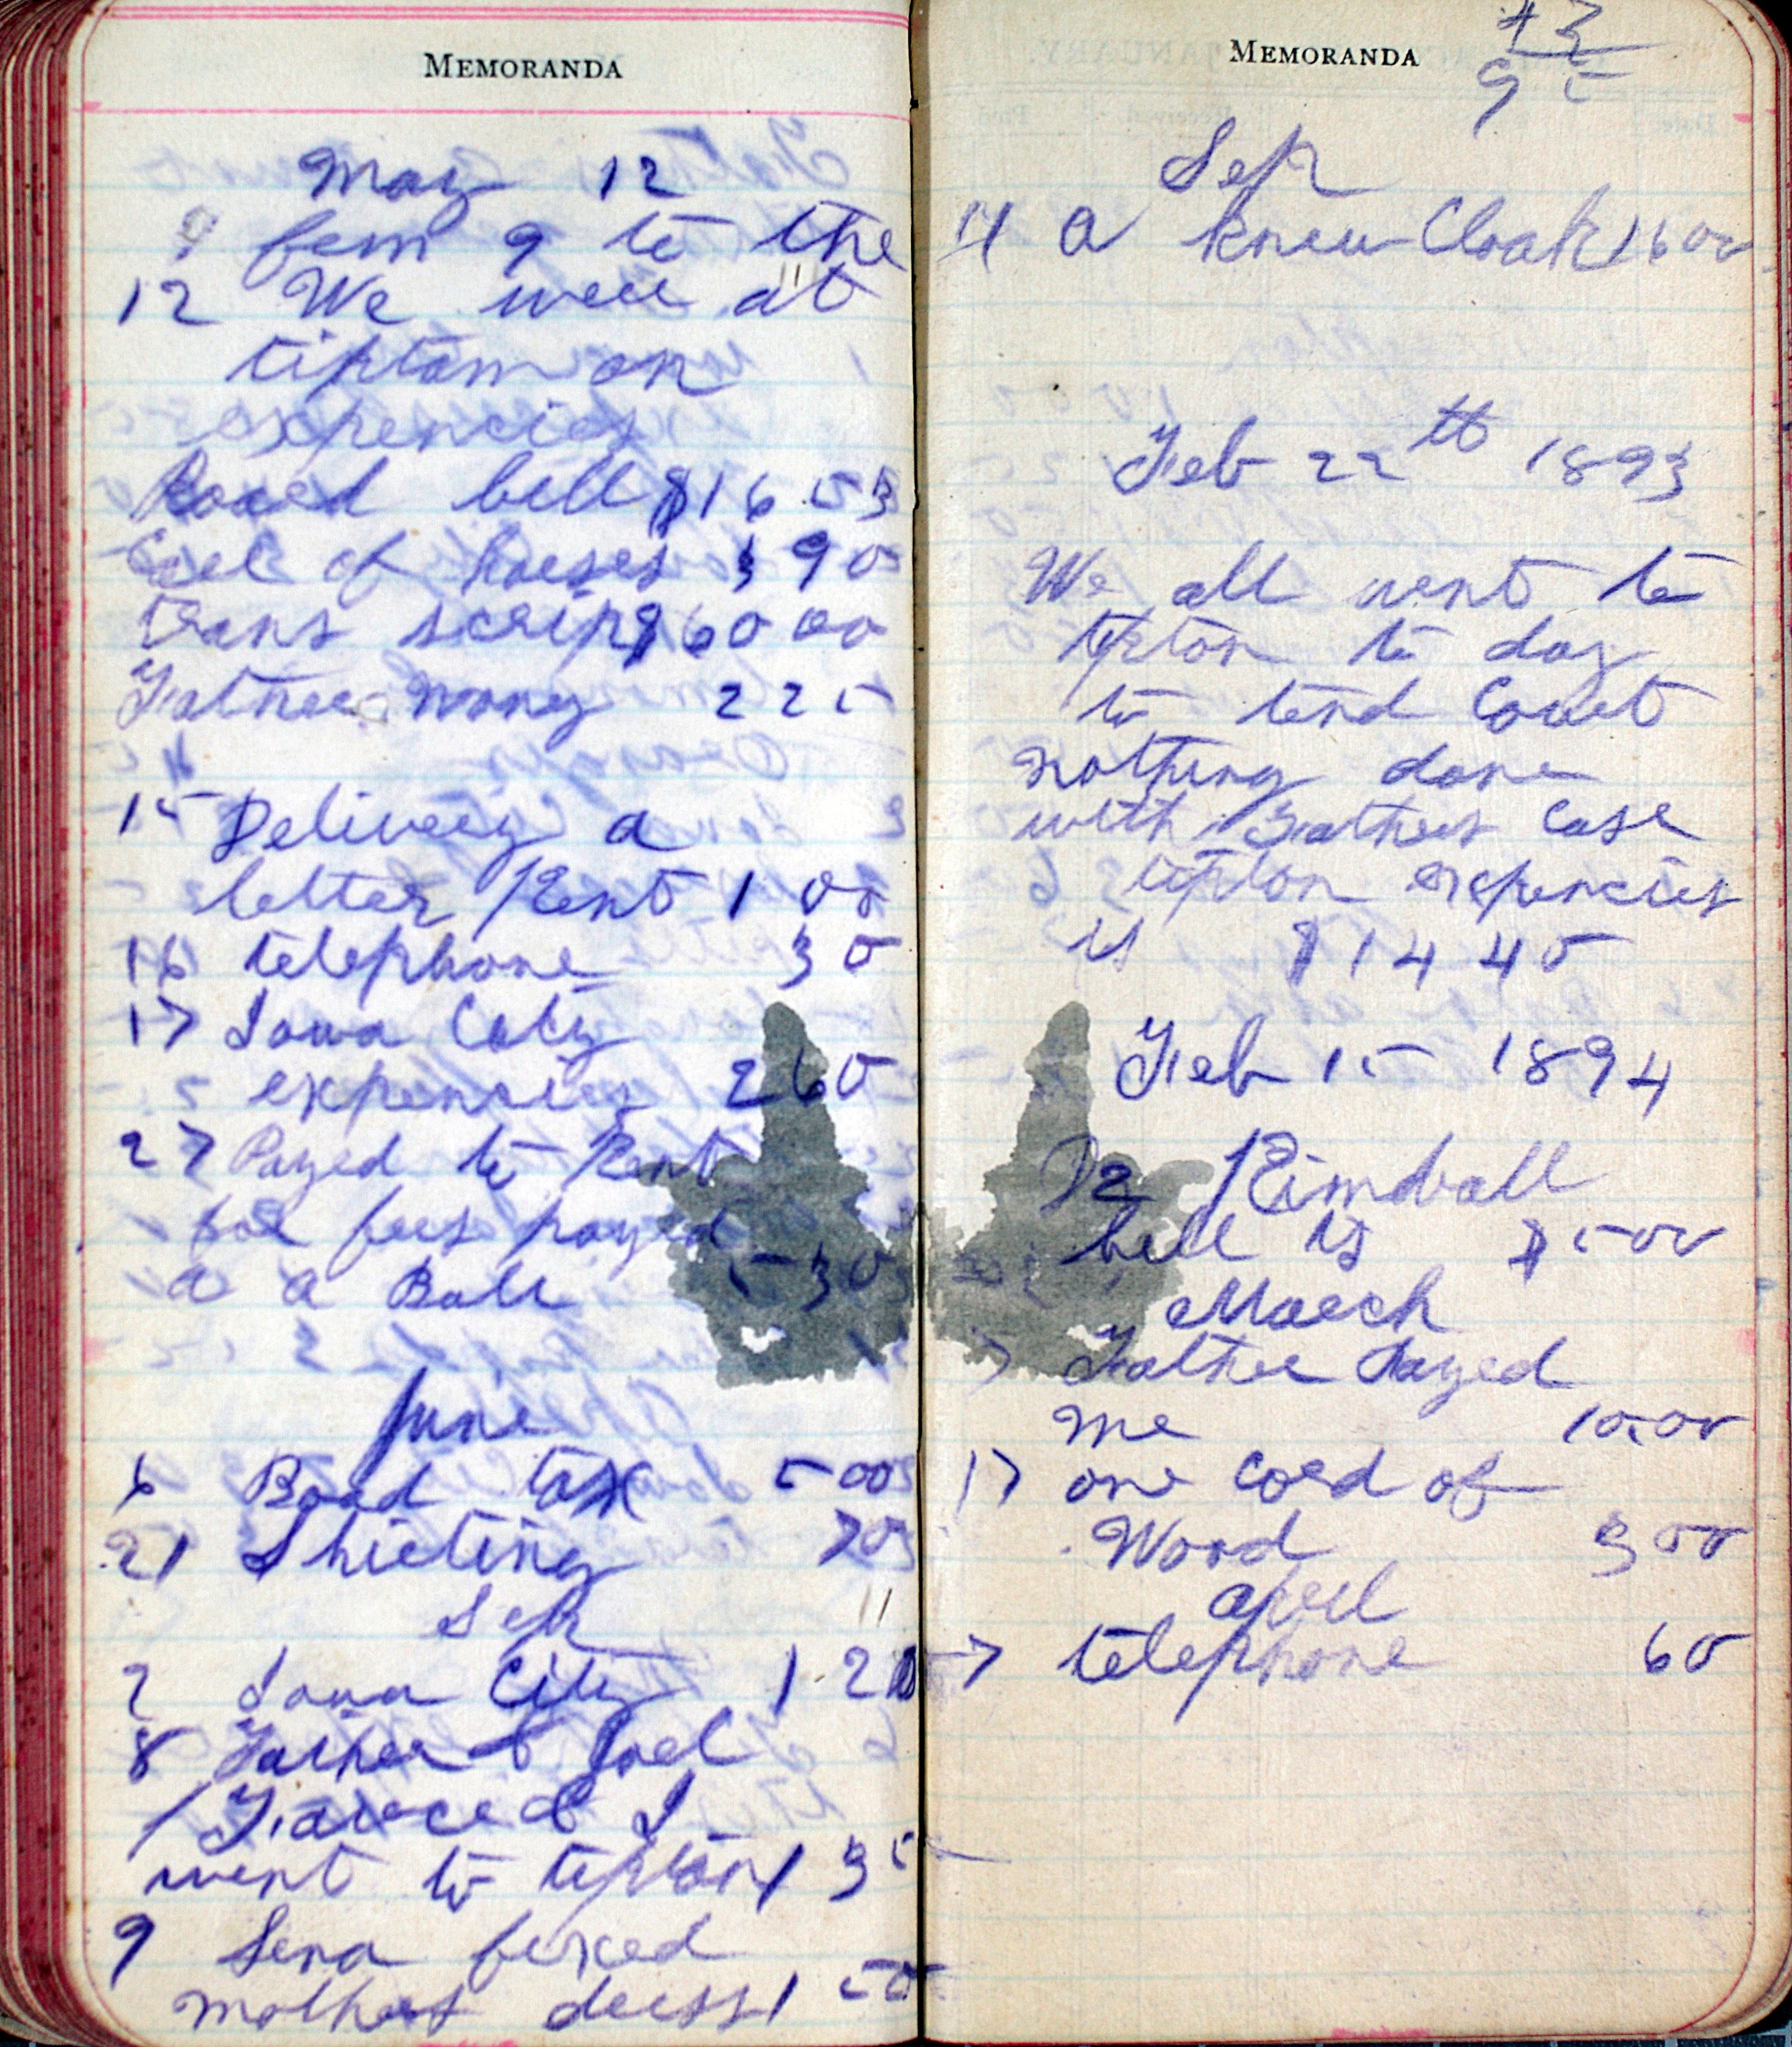 MEMORANDA
May 12
9 from 9 to the
12 We were at
tipton on
expencies
Board bill $16 55
Care of horses 3 90
trans scrip $60 00
Father money 2 25
15 Delivery a
letter Kent 1 00
16 telephone 30
17 Iowa City
expencies 2 60
27 Payed to Kent
for fees payed
a a Ball 5 30
June
6 Road tax 5 00
21 Shirting 70
Sep
7 Iowa City 1 20
8 Father & Joel
& I
went to tipton 1 35
9 Lena fixed
mothers dress 1 50
MEMORANDA
43
95
Sep
11 a knew Cloak 16 00
Feb 22th 1893
We all went to
tipton to day
to tend Court
nothing done
with Fathers Case
tipton expencies
is $14 40
Feb 15 1894
Dr Kimball
bill is $5 00
March
7 Father Payed
me 10.00
17 one cord of
Wood 5 00
April
7 telephone 60